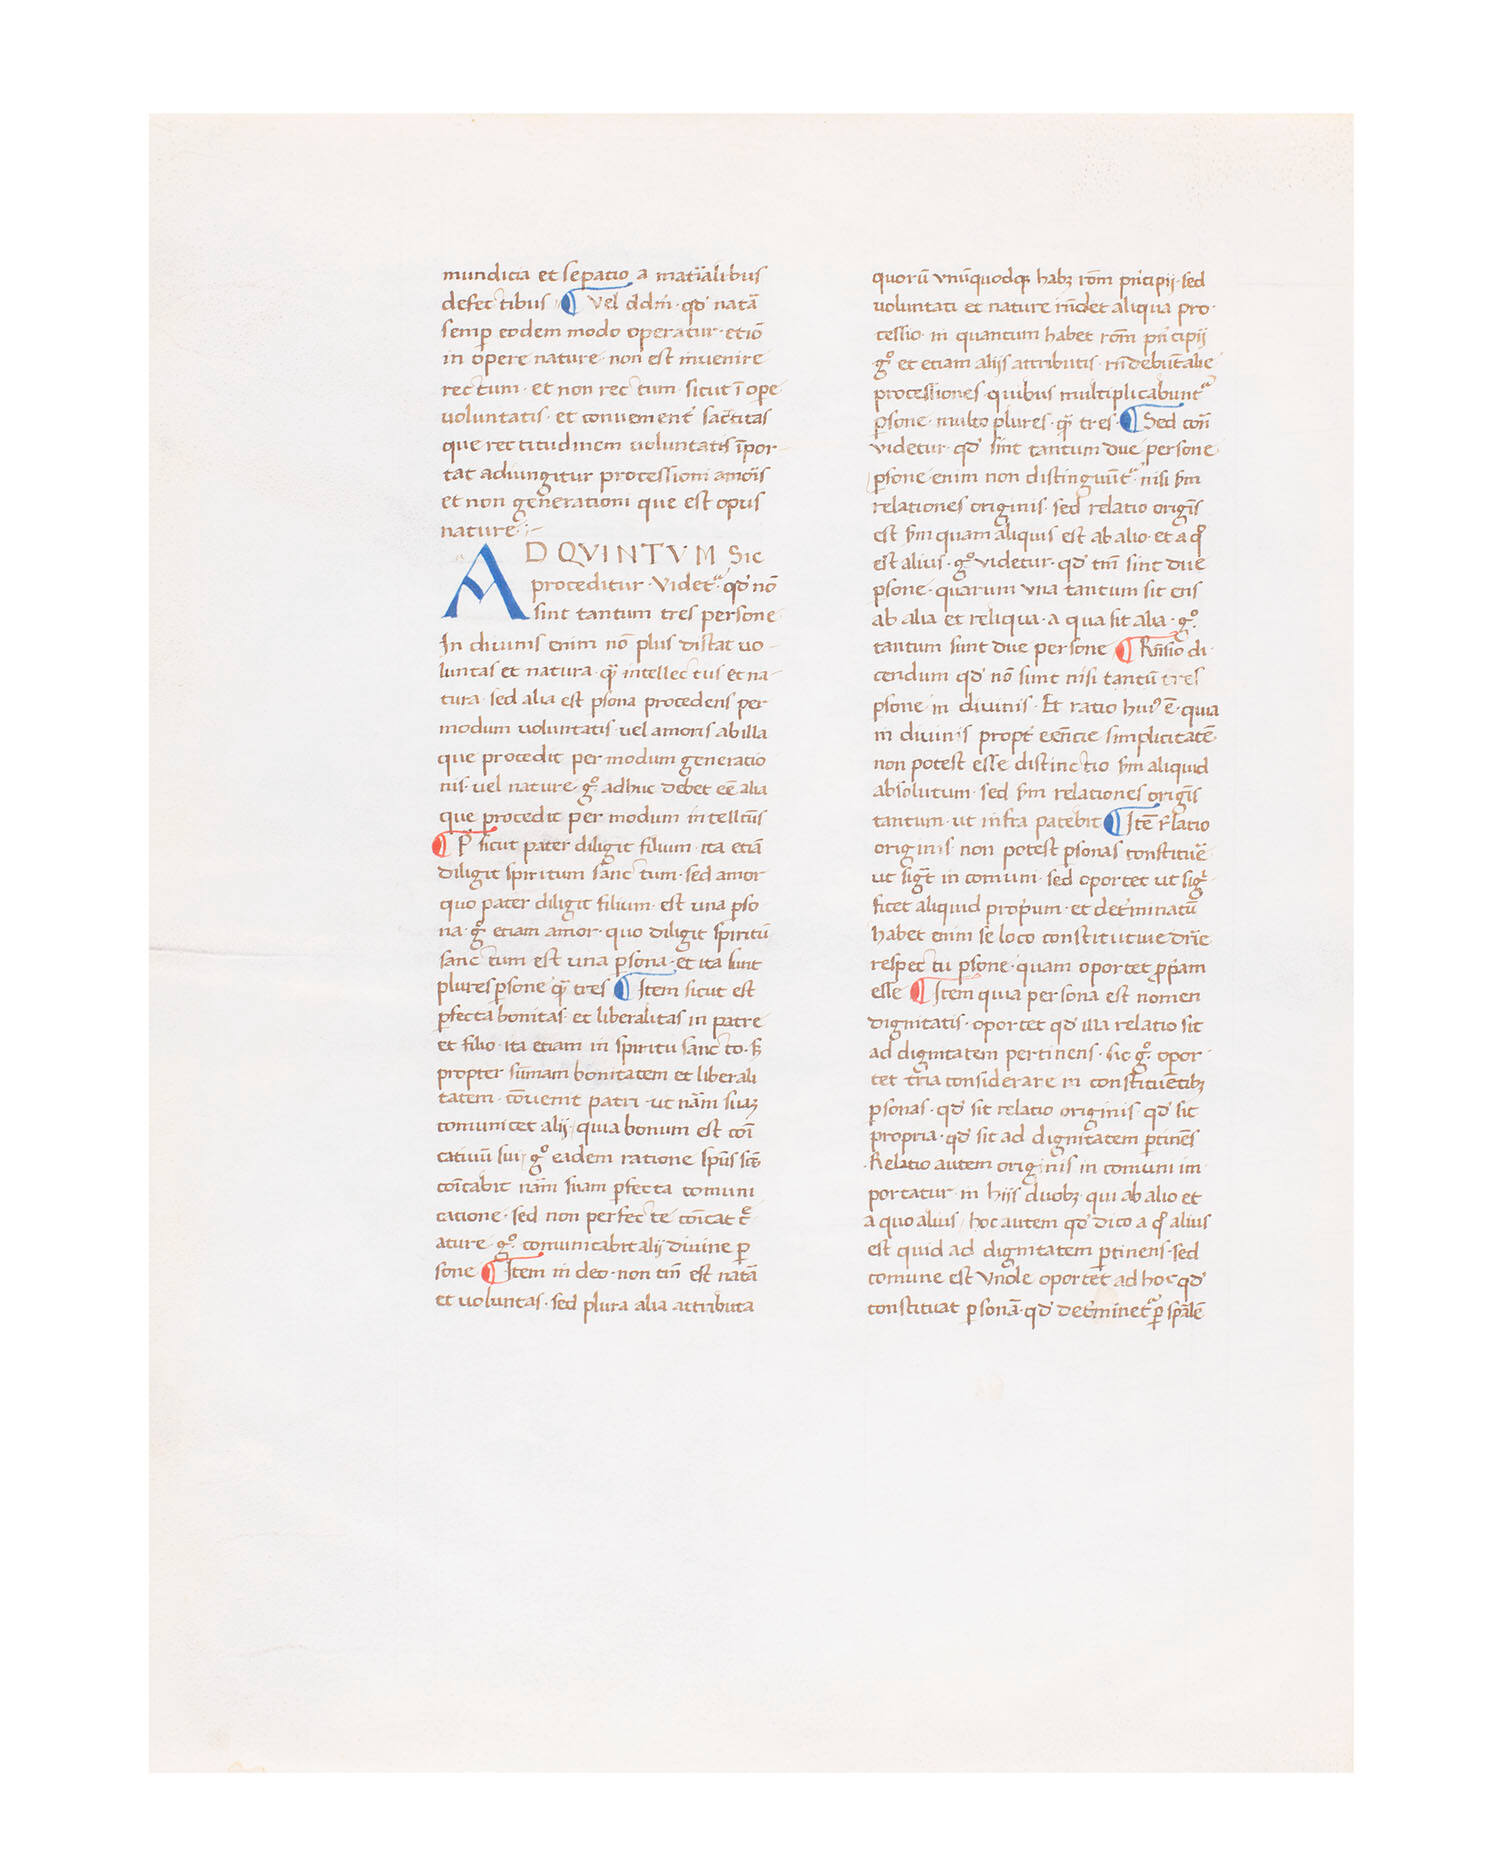 mundicia et sepatio a mat̄ialibus
defectibus ¶ Vel d.dm̄ · qđ natā
semp̱ eodem modo operatur · et iō
in opere nature · non est invenire
rectum · et non rectum · sicut ī ope
voluntatis · et convenient̄ sāctitas
que rectitudinem voluntatis īpor-
tat adiungitur processioni amoīs
et non generationi que est opus
nature :-
AD QVINTVM Sic
proceditur · Videt᷑ · qđ nō
sint tantum tres persone
In divinis enim nō plus distat vo-
luntas et natura · qꝫ intellectus et na-
tura · sed alia est ꝑsona procedens per
modum voluntatis vel amoris ab illa
que procedit per modum generatio
nis · vel nature · gͦ · adhuc debet eē alia
que procedit per modum intellc̄us
¶ P sicut pater diligit filium · ita etiā
diligit spiritum sānctum · sed amor
quo pater diligit filium · est una ꝑso
na · gͦ etiam amor · quo diligit spiritū
sanctum est una ꝑsona · et ita sunt
plures ꝑsone qꝫ tres ¶ Item sicut est
ꝑfecta bonitas · et liberalitas in patre
et filio · ita etiam in spiritu sancto · S̄
propter sūmam bonitatem et liberali
tatem · cōvenit patri · ut nām̄ suaꝫ
comunicet alij / quia bonum est coī
cativū sui / gͦ eadem ratione sp̄us sc̄s
coīcabit nām̄ suam ꝑfecta comuni
catione · sed non perfecte coīcat c̄r
ature · gͦ · comunicabit alij divine ꝑ
sone ¶ Item in deo · non tm̄ est natā
et voluntas · sed plura alia attributa
quorū vnūquodqꝫ habꝫ rōm pn̄cipij · sed
voluntati et nature rn̄det aliqua pro-
cessio · in quantum habet rōm pn̄cipij
gͦ et etiam alijs attributis · rn̄debūt alie
processiones · quibus multiplicabunt᷑
ꝑsone · multo plures · qꝫ tres · ¶ Sed con̄
videtur · qđ sint tantum due persone
ꝑsone enim non distinguūt᷑ · nisi ẜm
relationes originis · sed relatio origīs
est ẜm quam aliquis est ab alio · et a qͦ
est alius · gͦ videtur · qđ tm̄ sint due
ꝑsone · quarum vna tantum sit ens
ab alia et reliqua · a qua sit alia · gͦ ·
tantum sunt due persone ¶ Rn̄sio di-
cendum qđ nō sunt nisi tantū tres
ꝑsone in divinis · Et ratio hui⁹ ē · quia
in divinis propt̄ eēncie simplicitatē
non potest esse distinctio ẜm aliquid
absolutum · sed ẜm relationes origīs
tantum · ut infra patebit ¶ Itē Rl̄atio
originis non potest ꝑsonas constitue᷑
ut sigt̄ in comuni · sed oportet ut sig᷑
ficet aliquid prop̄um · et det̄minatū
habet enim se loco constitutive dr̄ie
respectu ꝑsone · quam oportet p̄p̄am
esse ¶ Item quia persona est nomen
dignitatis · oportet qđ illa relatio sit
ad dignitatem pertinens · sic gͦ · opor-
tet tr̄ia considerare in constituētibꝫ
ꝑsonas · qđ sit relatio originis · qđ sit
propria · qđ sit ad dignitatem ꝑtinēs
· Relatio autem originis in comuni im
portatur · in hiis duobꝫ · qui ab alio et
a quo alius / hoc autem qđ dico a qͦ alius
est quid ad dignitatem ꝑtinens · sed
comune est vn̄ole oportet ad hoc qđ
constituat ꝑsonā · qđ det̄minet᷑ ꝑ spālē